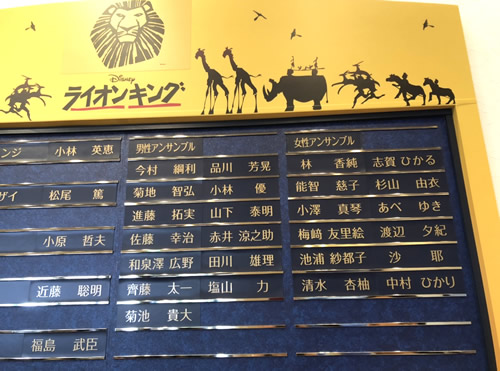 Disney
ライオンキング
ンジ 小林 英恵
ザイ 松尾 篤
小原 哲夫
近藤 聡明
福島 武臣
男性アンサンブル
今村 綱利 品川 芳晃
菊地 智弘 小林 優
進藤 拓実 山下 泰明
佐藤 幸治 赤井 涼之助
和泉澤 広野 田川 雄理
齊藤 太一 塩山 力
菊池 貴大
女性アンサンブル
林 香純 志賀 ひかる
能智 慈子 杉山 由衣
小澤 真琴 あべ ゆき
梅﨑 友里絵 渡辺 夕紀
池浦 紗都子 沙耶
清水 杏柚 中村 ひかり